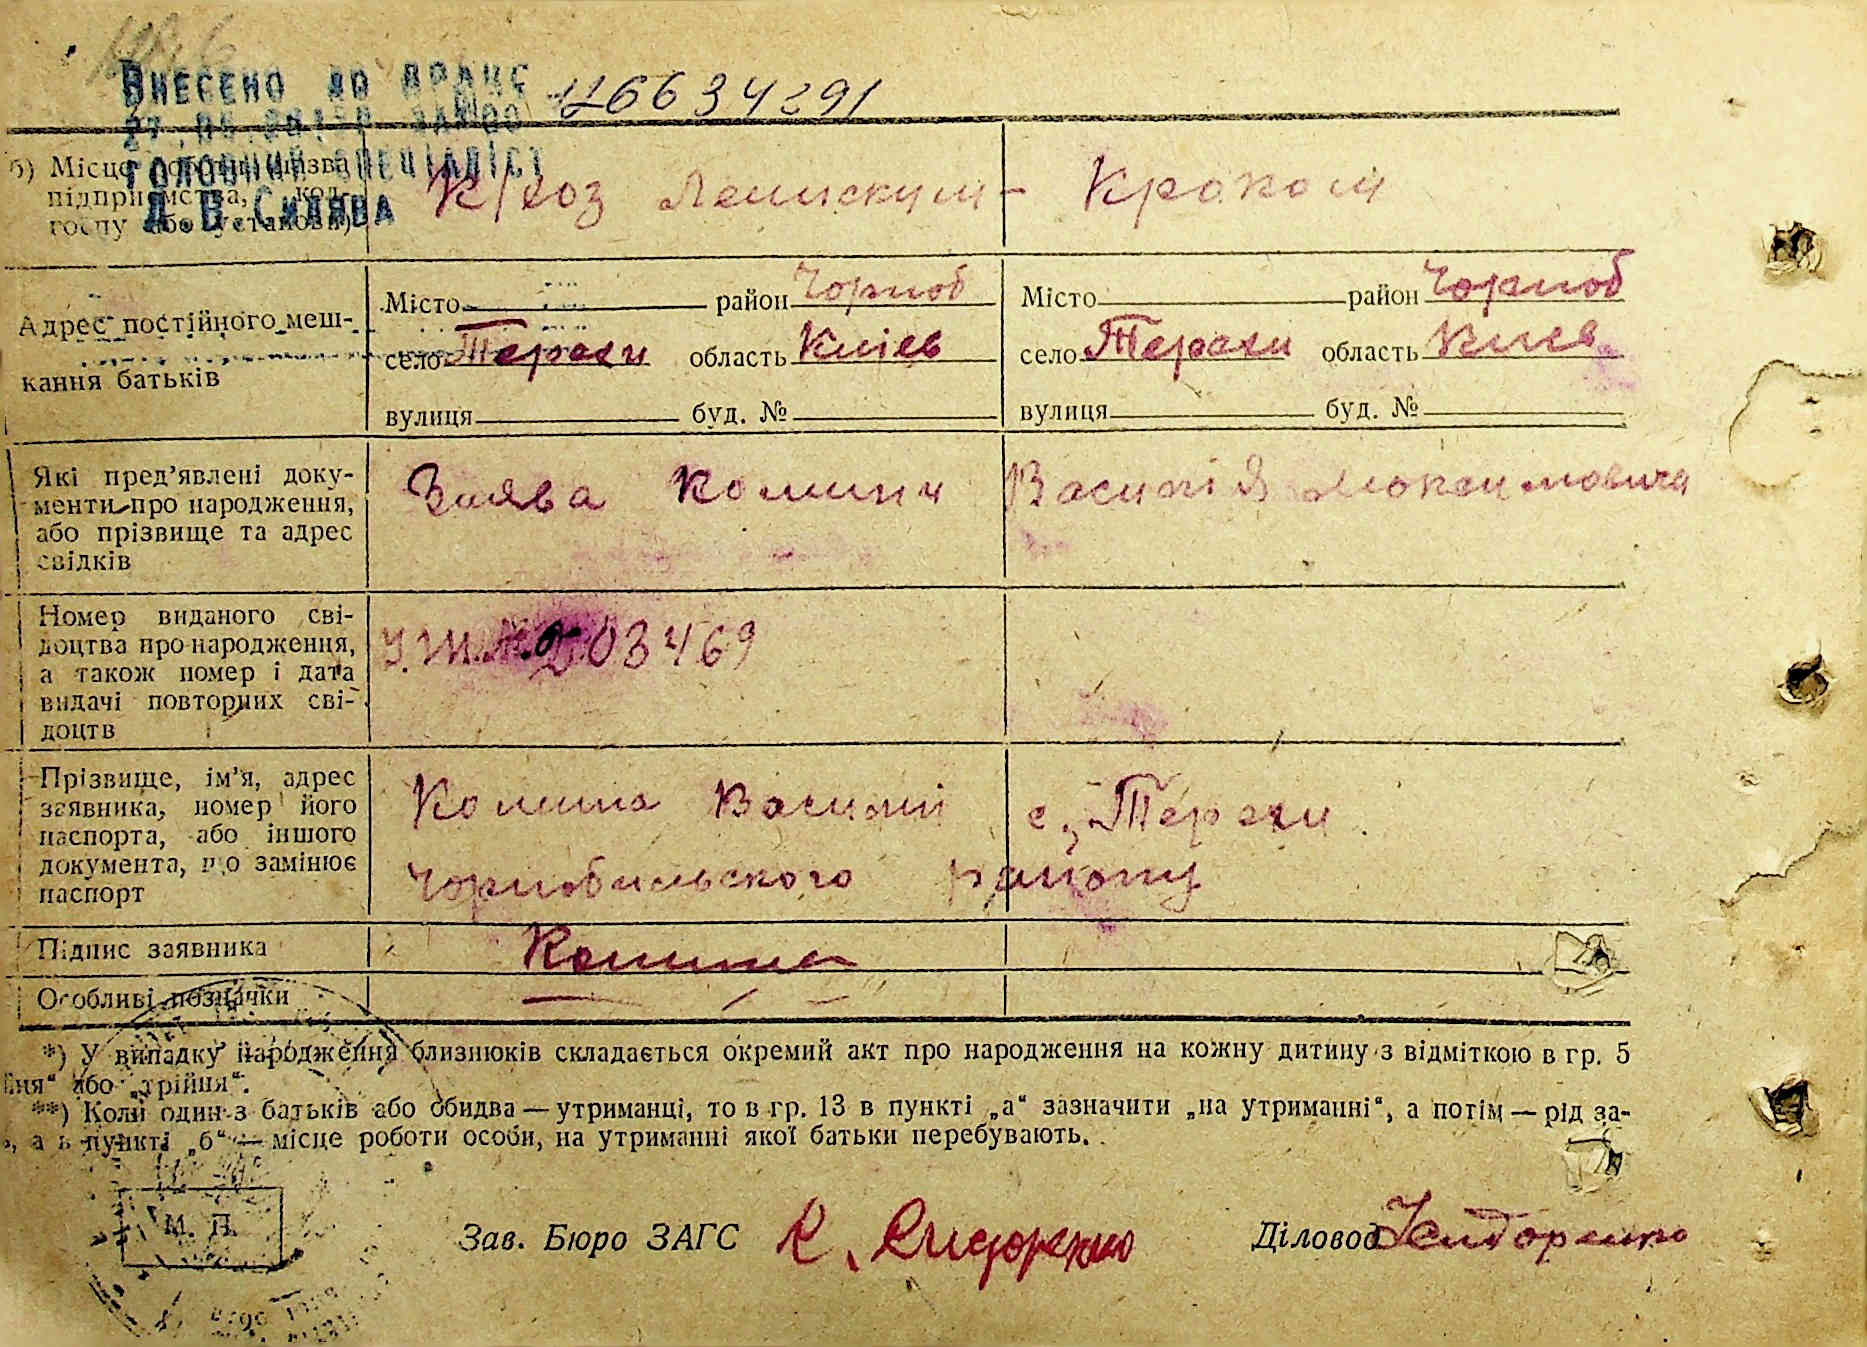 Внесено до ДРАЦС
12663429 1
Головний спеціаліст
Сидява
б) Місце
підприємства, кол-
госпу або установи)
К/гоз
Адрес постійного меш-
кання батьків
Місто район Чорноб
село Терехи область Київ
вулиця буд. №
Місто район Чорноб
село Терехи область Киев
вулиця буд. №
Які пред’явлені доку-
менти про народження,
або прізвище та адрес
свідків
Заява Василія
Номер виданого сві-
доцтва про народження,
а також номер і дата
видачі повторних сві-
доцтв
203469
Прізвище, ім’я, адрес
заявника, номер його
паспорта, або іншого
документа, що замінює
паспорт
Василий с. Терехи
Чорнобильського району
Підпис заявника
Особливі позначки
*) У випадку народження близнюків складається окремий акт про народження на кожну дитину з відміткою в гр. 5
або „трійня“.
**) Коли один з батьків або обидва — утриманці, то в гр. 13 в пункті „а“ зазначити „на утриманні“, а потім — рід за-
а в пункті „б“ — місце роботи особи, на утриманні якої батьки перебувають.
М. П.
Зав. Бюро ЗАГС К. Сидоренко
Діловод Сидоренко